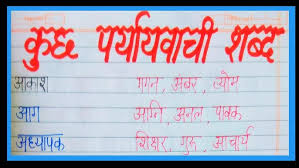 कुछ पर्यायवाची शब्द
आकाश गगन, अंबर, व्योम
आग अग्नि, अनल, पावक
अध्यापक शिक्षक, गुरू, आचार्य